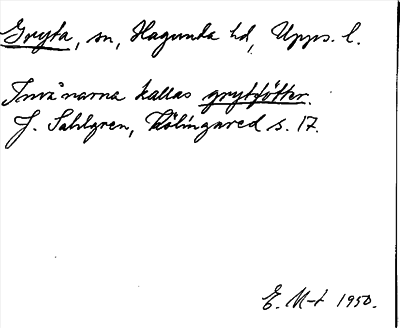 Gryta, sn, Hagunda hd, Upps. l.
Invånarna kallas grytfötter.
J. Sahlgren, Kölingared s. 17.
E. M-t 1950.